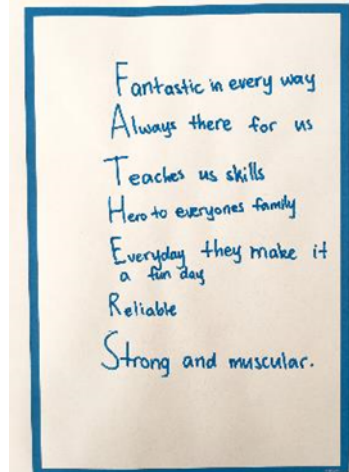 Fantastic in every way
Always there for us
Teaches us skills
Hero to everyones family
Everyday they make it
a fun day
Reliable
Strong and muscular.